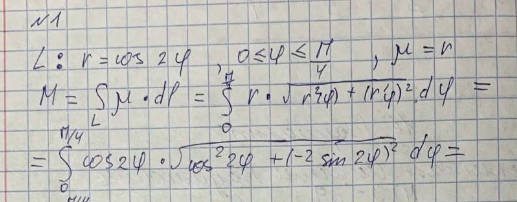 №1
L: r = cos 2φ , 0 ≤ φ ≤ π/4 , μ = r
M = ∫_L μ · dl = ∫_0^π r · √(r²(φ) + (r'φ)²) dφ =
= ∫_0^{π/4} cos 2φ · √(cos² 2φ + (-2 sin 2φ)²) dφ =